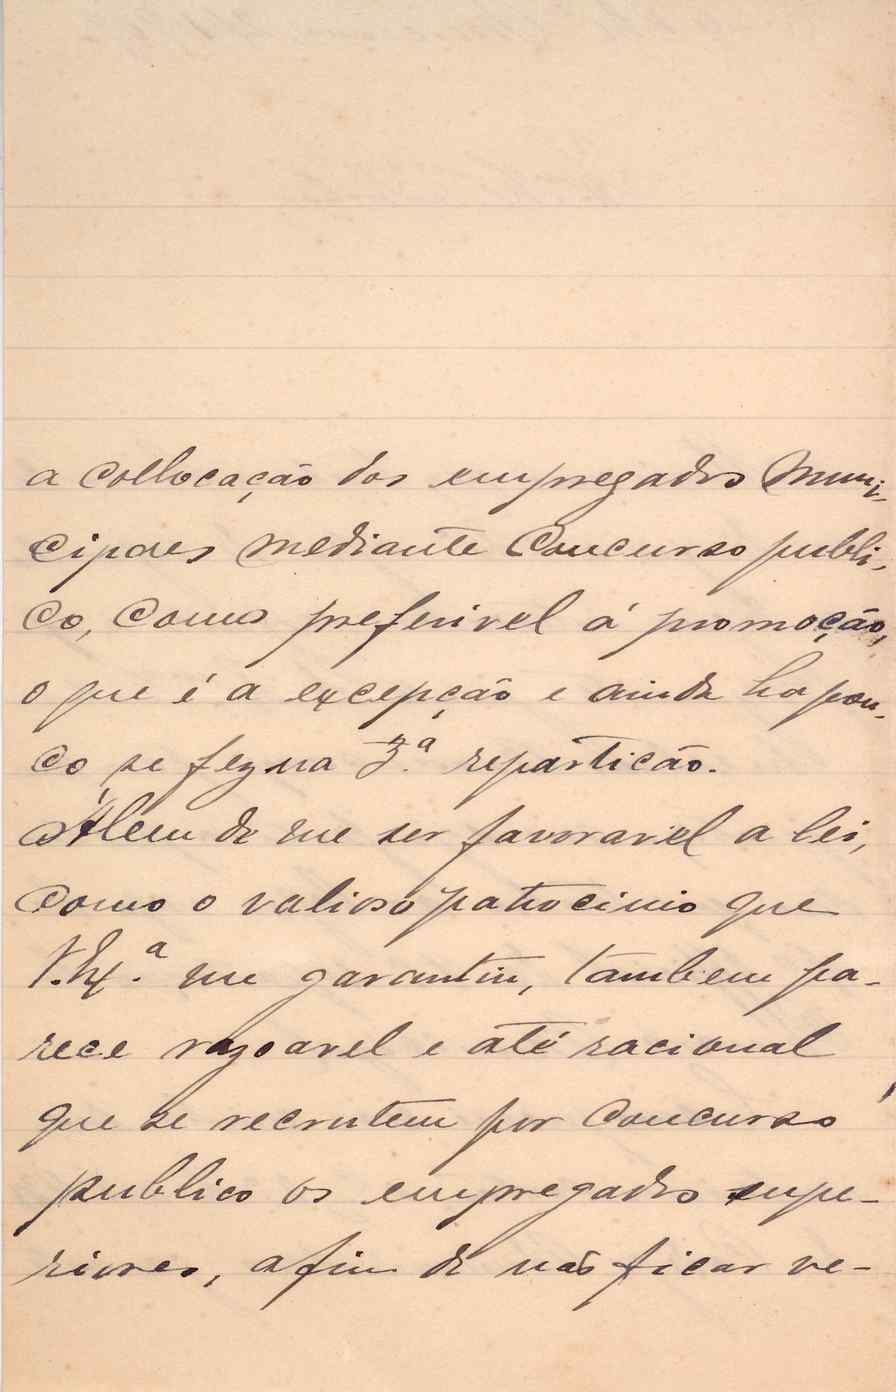 a collocação dos empregados Muni-
cipaes mediante Concurso publi-
co, como preferivel á promoção,
o que é a excepção e ainda ha pou-
co se fez na 3.ª repartição.
Alem de me ser favoravel a lei,
como o valioso patrocinio que
V. Ex.ª me garantiu, tambem pa-
rece razoavel e até racional
que se recrutem por Concurso
publico os empregados supe-
riores, afim de não ficar ve-